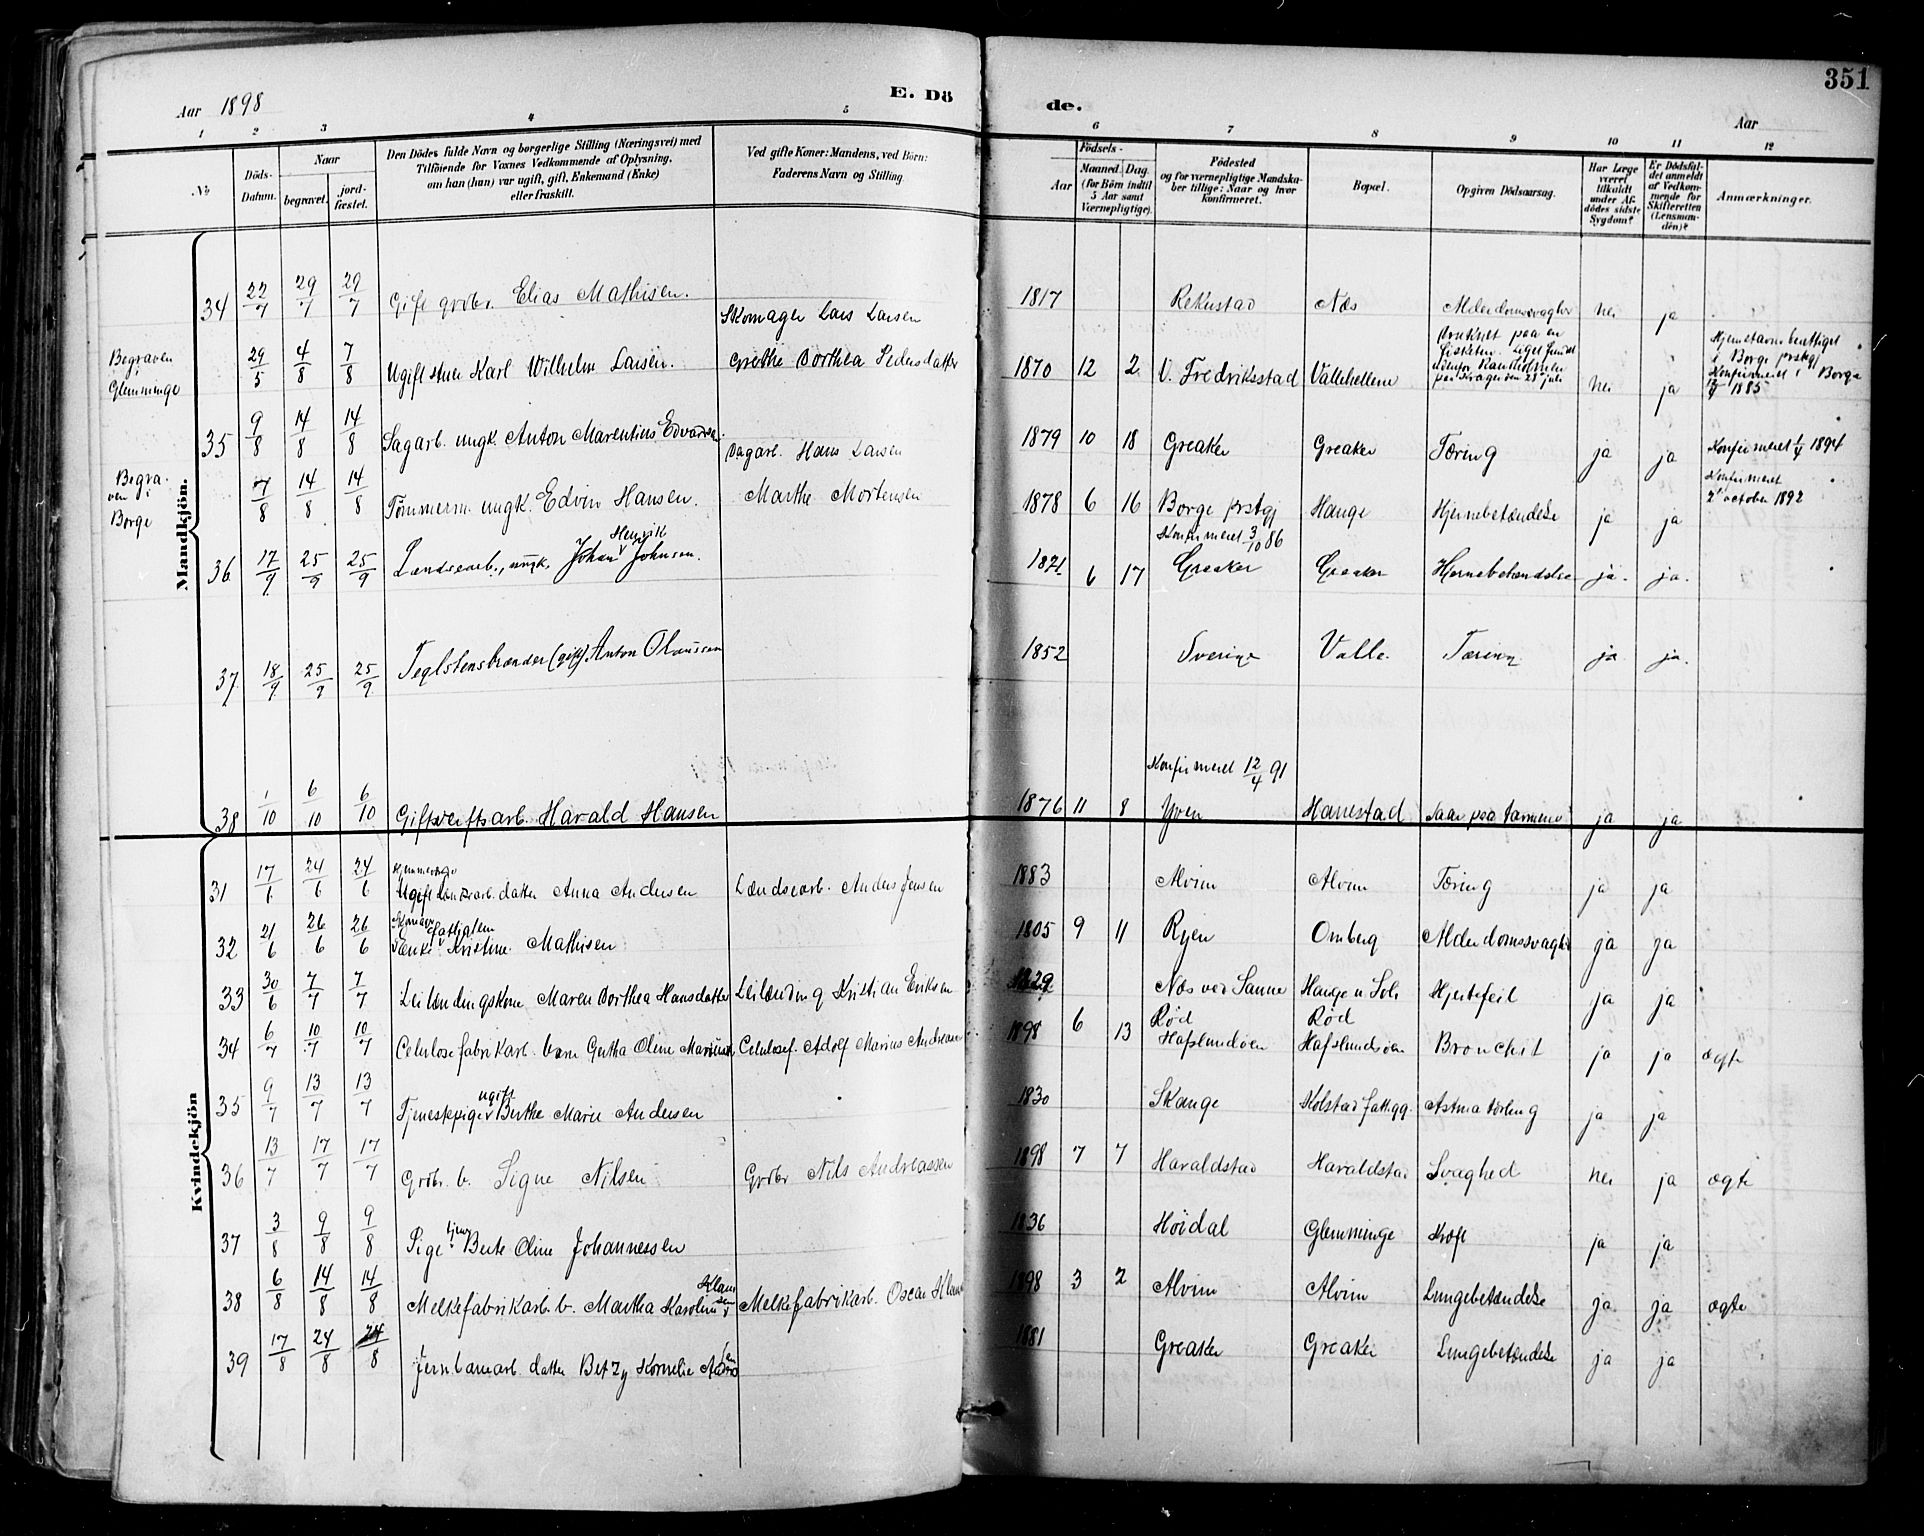 Aar 1898
E. Dö
de.
351
Aar
1 2 3 4 5 6 7 8 9 10 11 12
No
Döds-
Datum.
Naar
begravet.
jord-
fæstet.
Den Dödes fulde Navn og borgerlige Stilling (Næringsvei) med
Tilföiende for Voxnes Vedkommende af Oplysning,
om han (hun) var ugift, gift, Enkemand (Enke)
eller fraskilt.
Ved gifte Koner: Mandens, ved Börn:
Faderens Navn og Stilling.
Födsels-
Aar
Maaned. Dag.
(for Börn indtil
5 Aar samt
Værnepligtige).
Födested
og for værnepligtige Mandska-
ber tillige: Naar og hvor
konfirmeret.
Bopæl.
Opgiven Dödsaarsag.
Har Læge
været
tilkaldt
under Af-
dödes sidste
Sygdom?
Er Dödsfal-
det anmeldt
af Vedkom-
mende for
Skifteretten
(Lensman-
den)?
Anmærkninger.
Mandkjön.
34 22/7 29/7 29/7 Gift grdbr. Elias Mathisen. 1817 Rekustad Næs Alderdomssvaghed nei ja
Begraven
i
Glemminge
29/5 4/8 7/8 Ugift Karl Wilhelm Larsen.
Skomager Lars Larsen
Grethe Dorthea Pedersdatter
1870 12 2 V. Fredriksstad Vallehellene
druknet paa en
Liget fundet
nei ja
i Borge prstgj
Konfirmeret i Borge
1885
35 9/8 14/8 14/8 Sagarb. ungk. Anton Marentius Edvardsen 1879 10 18 Greaker Greaker Tæring ja ja Konfirmeret 1894
Begra-
ven i
Borge
7/8 14/8 14/8 Tømmerm. ungk. Edvin Hansen.
Sagarb. Hans Larsen
Marthe Mortensen
1878 6 16 Borge prstgj Hauge Hjernebetændelse ja ja
Konfirmeret
2 october 1892
36 17/9 25/9 25/9 Lændsearb., ungk. Johan Henrik Johnsen. 1871 6 17
Konfirmeret 3/10 86
Greaker Greaker Hjernebetændelse ja. ja.
37 18/9 25/9 25/9 Teglstensbrænder (gift) Anton Olaussen 1852 Sverige Valle. Tæring ja ja.
38 1/10 6/10 6/10 Gift verftsarb. Harald Hansen 1876 11 8
Konfirmeret 12/4 91
Yven Hanestad Saar paa tarmene ja ja
Kvindekjön
31 17/6 24/6 24/6
Ugift Lændsearb. datter Anna Andersen Lændsearb. Anders Jensen 1883 Alvim Alvim Tæring ja ja
32 21/6 26/6 26/6
Enke Kristine Mathisen 1805 9 11 Ryen Omberg Alderdomssvaghed ja ja
33 30/6 7/7 7/7 Leilændingskone Maren Dorthea Hansdatter Leilænding Kristian Eriksen 1829 Næs ved Sanne Hauge u. Sol. Hjertefeil ja ja
34 6/7 10/7 10/7 Celulosefabrikarb. barn Gertha Oline Mariusen Celulosef. Adolf Marius Andreasen 1898 6 13 Rød Hafslundøen Rød Hafslundsøen Bronchit ja ja ægte
35 9/7 13/7 13/7 Tjenestepige ugift Berthe Marie Andersen 1830 Skauge Kolstad fattigg. Astma ja ja
36 13/7 17/7 17/7 Grdbr. b. Signe Nilsen Grdbr Nils Andreassen 1898 7 7 Haraldstad Haraldstad Svaghed nei ja ægte
37 3/8 9/8 9/8 Pige tjen. Berte Oline Johannessen 1836 Høidal Glemminge Kræft ja ja
38 6/8 14/8 14/8 Melkefabrikarb. b. Martha Karoline Klausen Melkefabrikarb. Oscar Klausen 1898 3 2 Alvim Alvim Lungebetændelse ja ja ægte
39 17/8 24/8 24/8 Jernbanearb. datter Betzy Kornelie 1881 Greaker Greaker Lungebetændelse ja ja